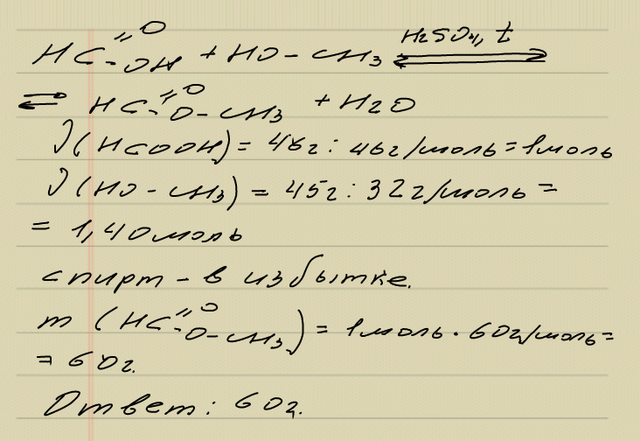 HC=O-OH + HO-CH₃ ⇌ H₂SO₄, t
⇌ HC=O-O-CH₃ + H₂O
ν(HCOOH) = 46г : 46г/моль = 1моль
ν(HO-CH₃) = 45г : 32г/моль =
= 1,40моль
спирт - в избытке.
m (HC=O-O-CH₃) = 1моль · 60г/моль=
= 60г.
Ответ: 60г.